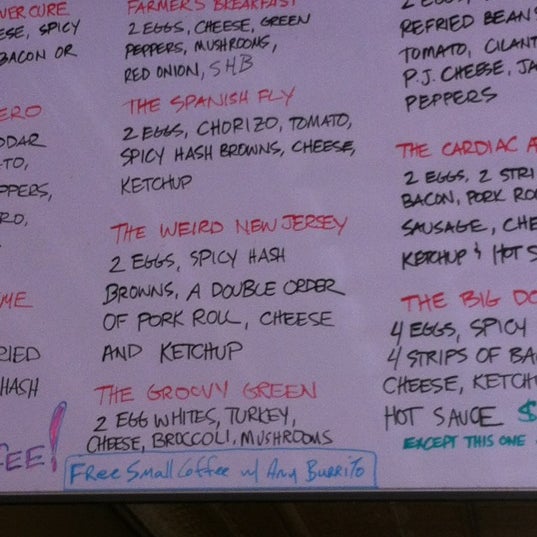 VER CURE
ESE, SPICY
BACON OR
ERO
DDAR
TO,
PPERS,
RO,
ME
RIED
HASH
FEE!
FARMER'S BREAKFAST
2 EGGS, CHEESE, GREEN
PEPPERS, MUSHROOMS,
RED ONION, SHB
THE SPANISH FLY
2 EGGS, CHORIZO, TOMATO,
SPICY HASH BROWNS, CHEESE,
KETCHUP
THE WEIRD NEW JERSEY
2 EGGS, SPICY HASH
BROWNS, A DOUBLE ORDER
OF PORK ROLL, CHEESE
AND KETCHUP
THE GROOVY GREEN
2 EGG WHITES, TURKEY,
CHEESE, BROCCOLI, MUSHROOMS
FREE SMALL COFFEE W/ ANY BURRITO
2 EGGS,
REFRIED BEANS
TOMATO, CILANT
P.J. CHEESE, JA
PEPPERS
THE CARDIAC A
2 EGGS, 2 STRI
BACON, PORK RO
SAUSAGE, CHE
KETCHUP & HOT S
THE BIG DO
4 EGGS, SPICY
4 STRIPS OF BA
CHEESE, KETCH
HOT SAUCE $
EXCEPT THIS ONE